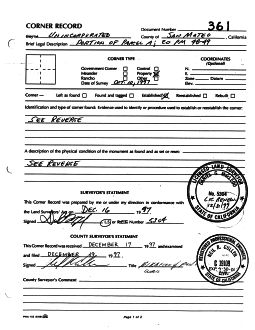 CORNER RECORD
Document Number 361
UNINCORPORATED County of SAN MATEO, California
Brief Legal Description PORTION OF PARCEL A;
CORNER TYPE
COORDINATES
(Optional)
Government Corner Control
Meander Property
Rancho Other
Date of Survey
N.
E.
Zone Datum
Elev.
Corner - Left as found Found and tagged Established Reestablished Rebuilt
Identification and type of corner found: Evidence used to identify or procedure used to establish or reestablish the corner:
SEE REVERSE
A description of the physical condition of the monument as found and as set or reset:
SEE REVERSE
SURVEYOR'S STATEMENT
This Corner Record was prepared by me or under my direction in conformance with
the Land Surveyors' Act on DEC. 16 1997
Signed 5304
LICENSED LAND SURVEYOR
No. 5304
STATE OF CALIFORNIA
COUNTY SURVEYOR'S STATEMENT
This Corner Record was received DECEMBER 17 1997 and examined
and filed DECEMBER 1997
Signed Title
REGISTERED PROFESSIONAL ENGINEER
NEIL R. CULLEN
STATE OF CALIFORNIA
County Surveyor's Comment
Page 1 of 2